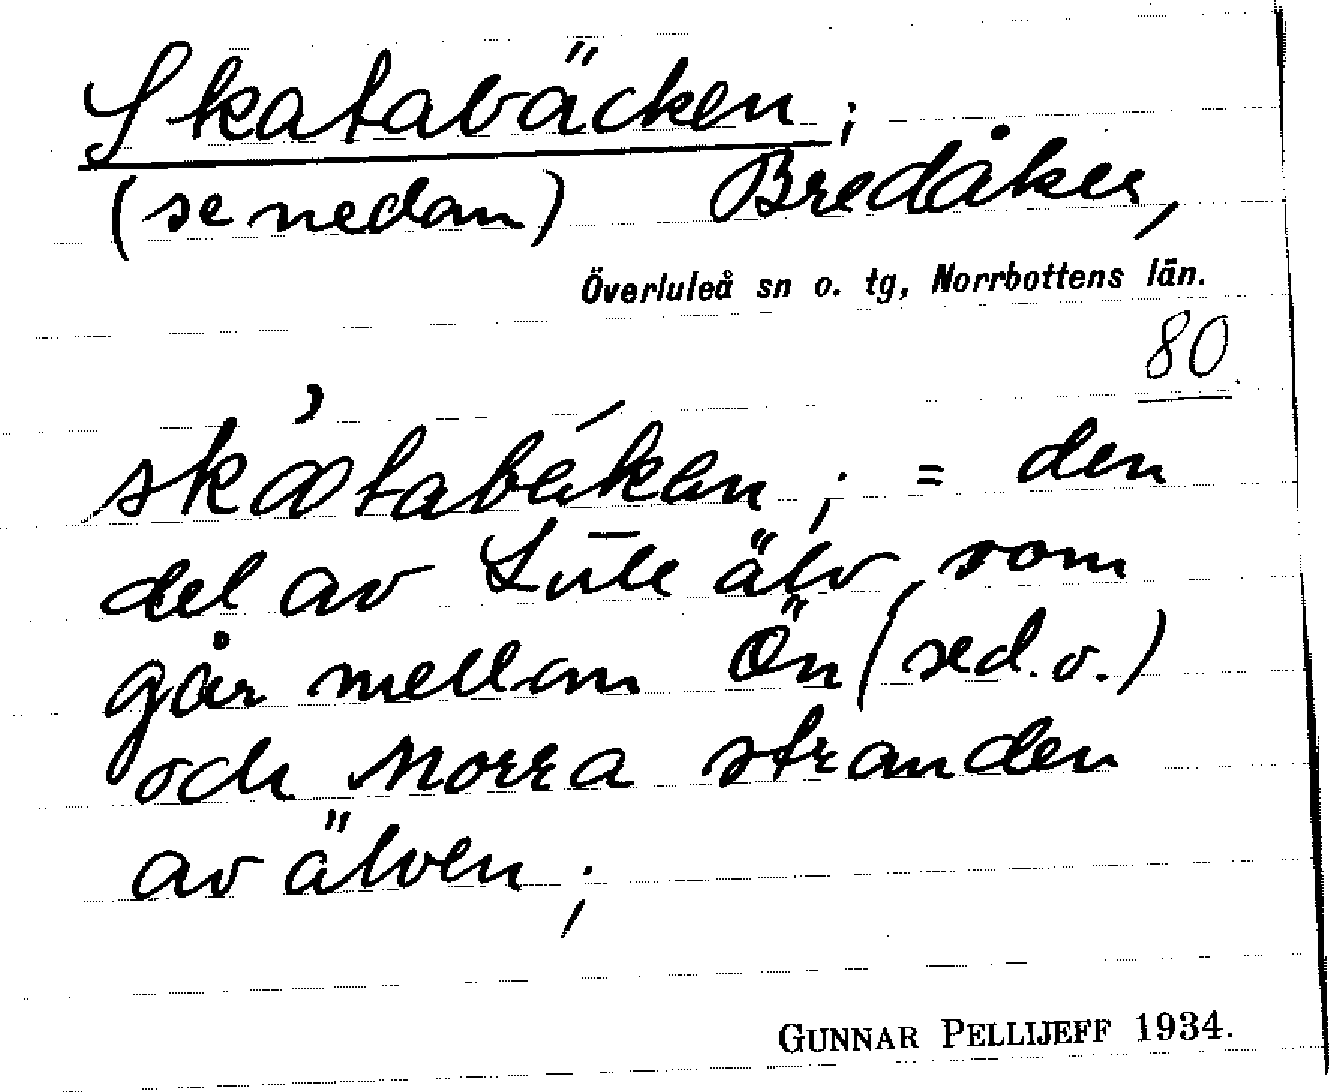 Skatabäcken;
(se nedan) Bredåker,
Överluleå sn o. tg, Norrbottens län.
80
= den
del av Lule älv, som
går mellan Ön (sed. o.)
och Norra stranden
av älven;
GUNNAR PELLIJEFF 1934.